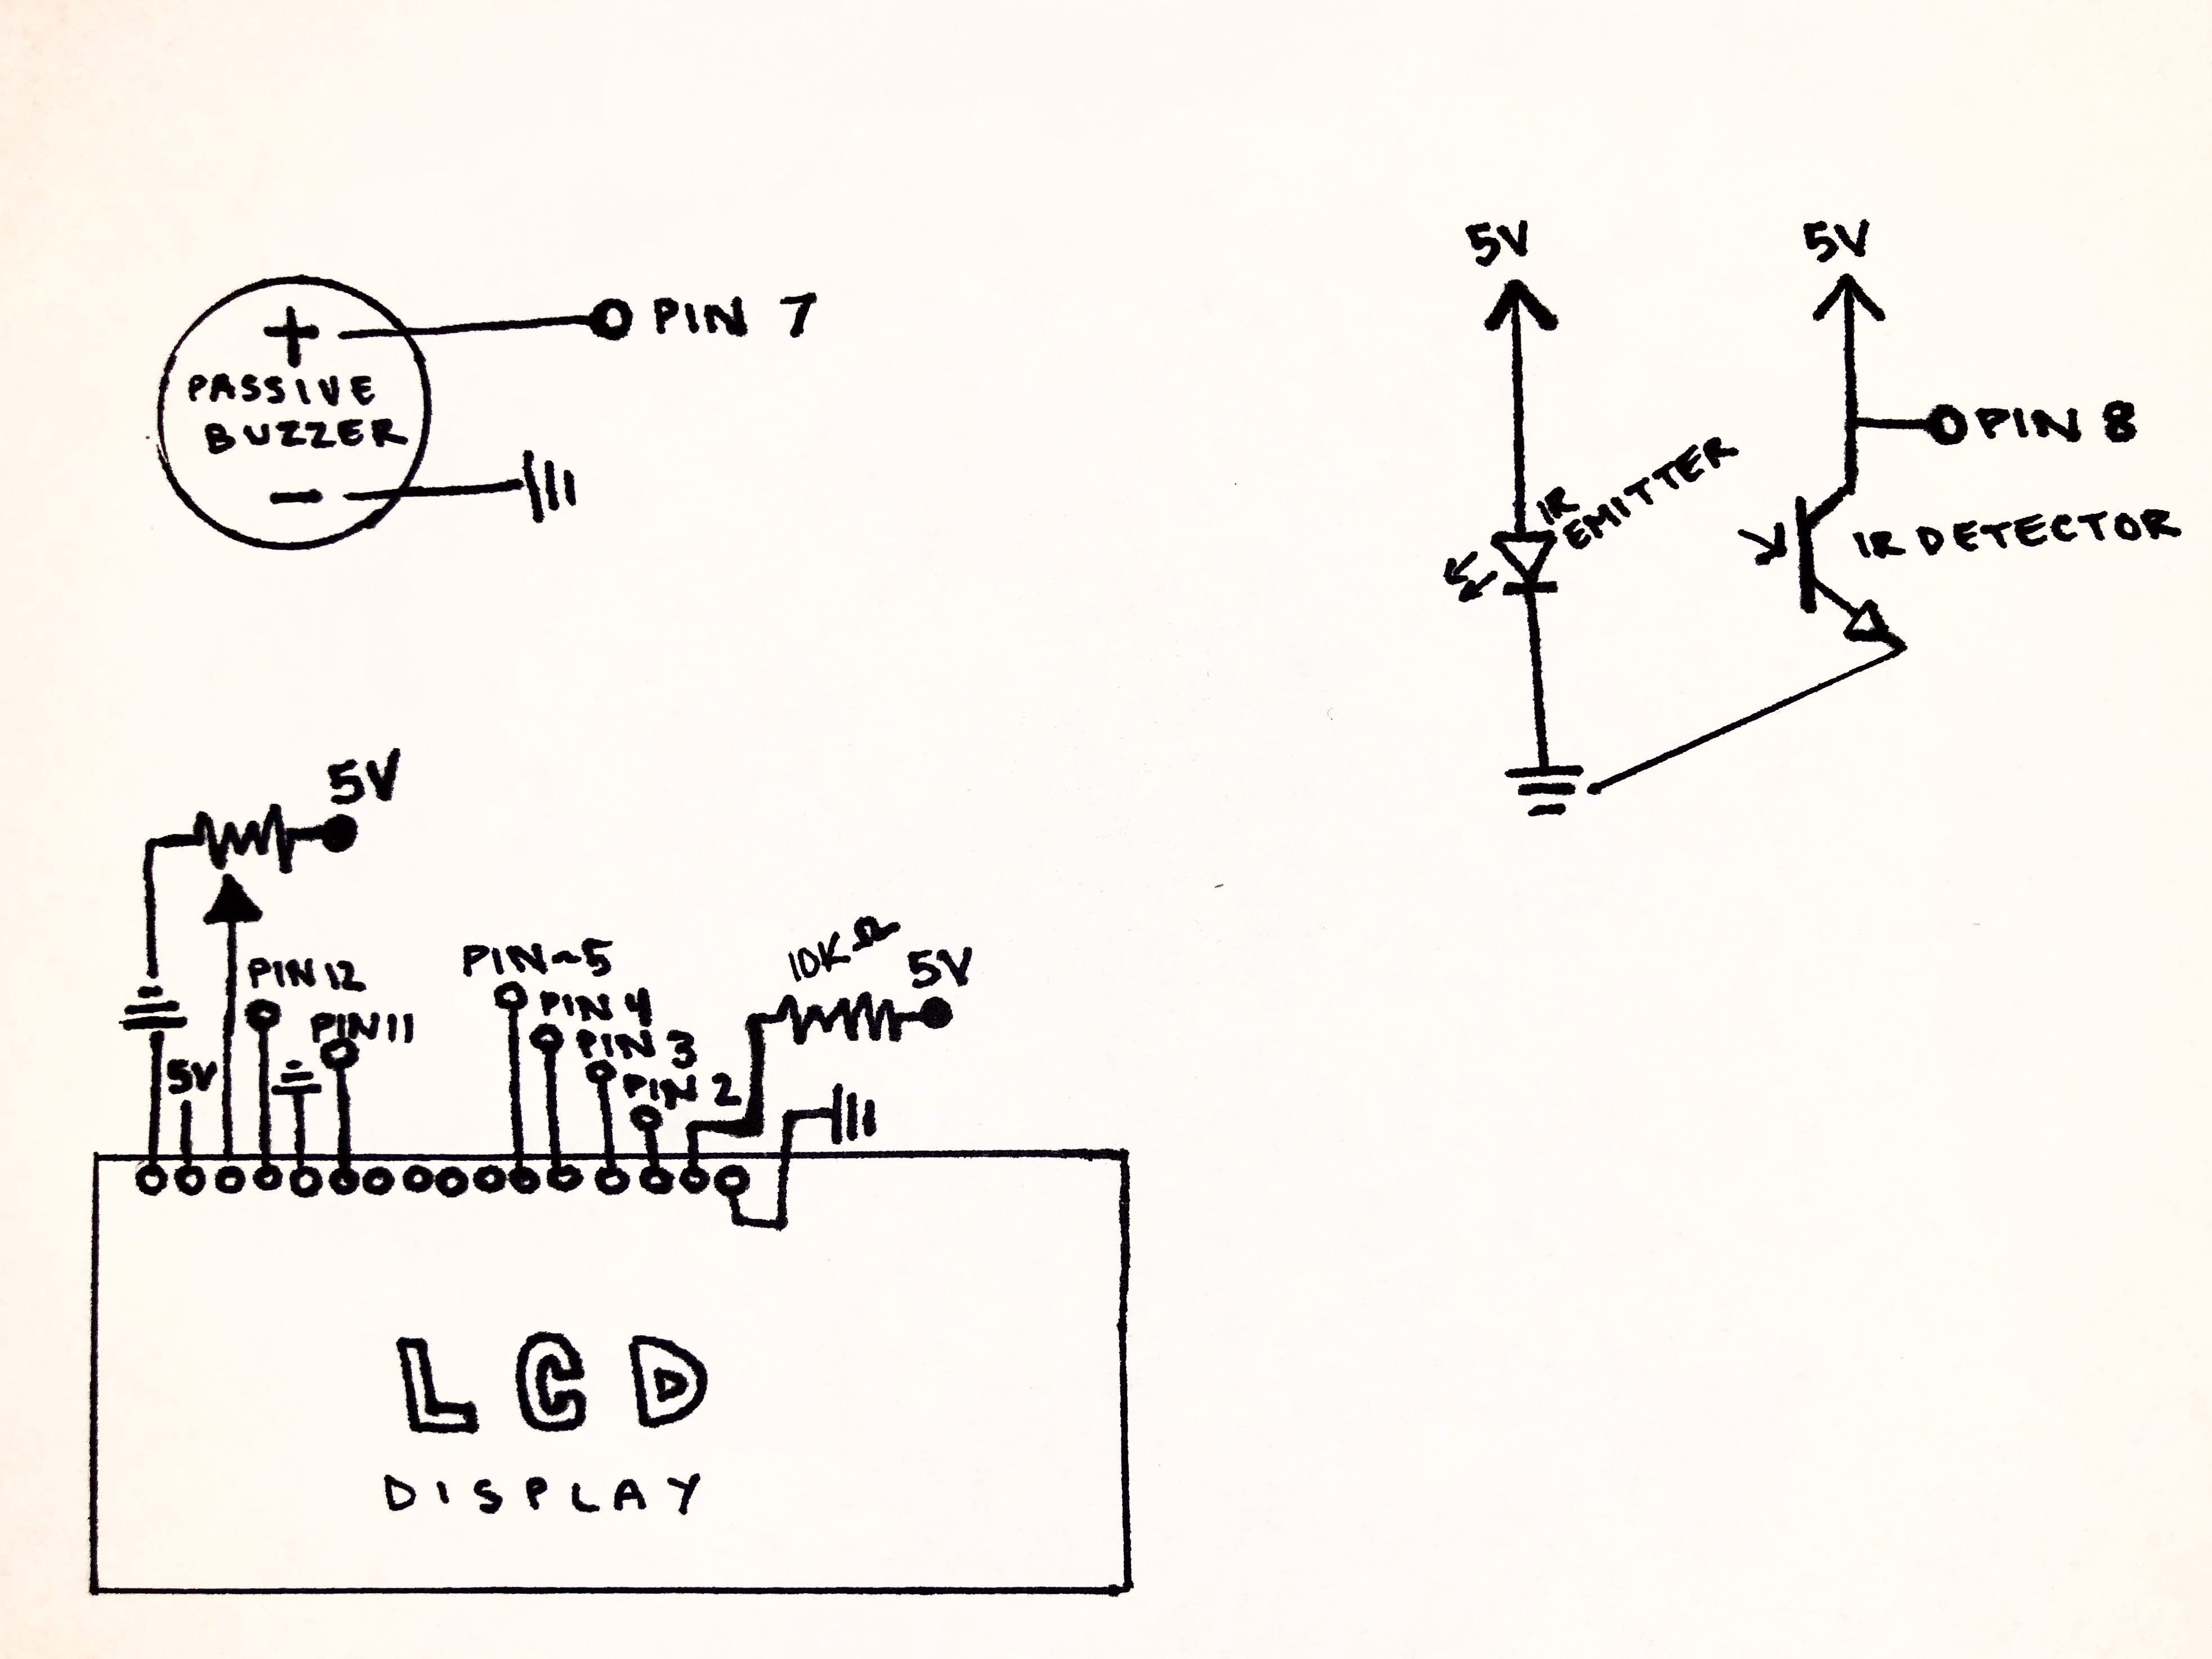 +
PASSIVE
BUZZER
−
PIN 7
5V
5V
PIN 8
IR
EMITTER
IR DETECTOR
5V
PIN 12
PIN 11
5V
PIN~5
PIN 4
PIN 3
PIN 2
10KΩ
5V
LCD
DISPLAY